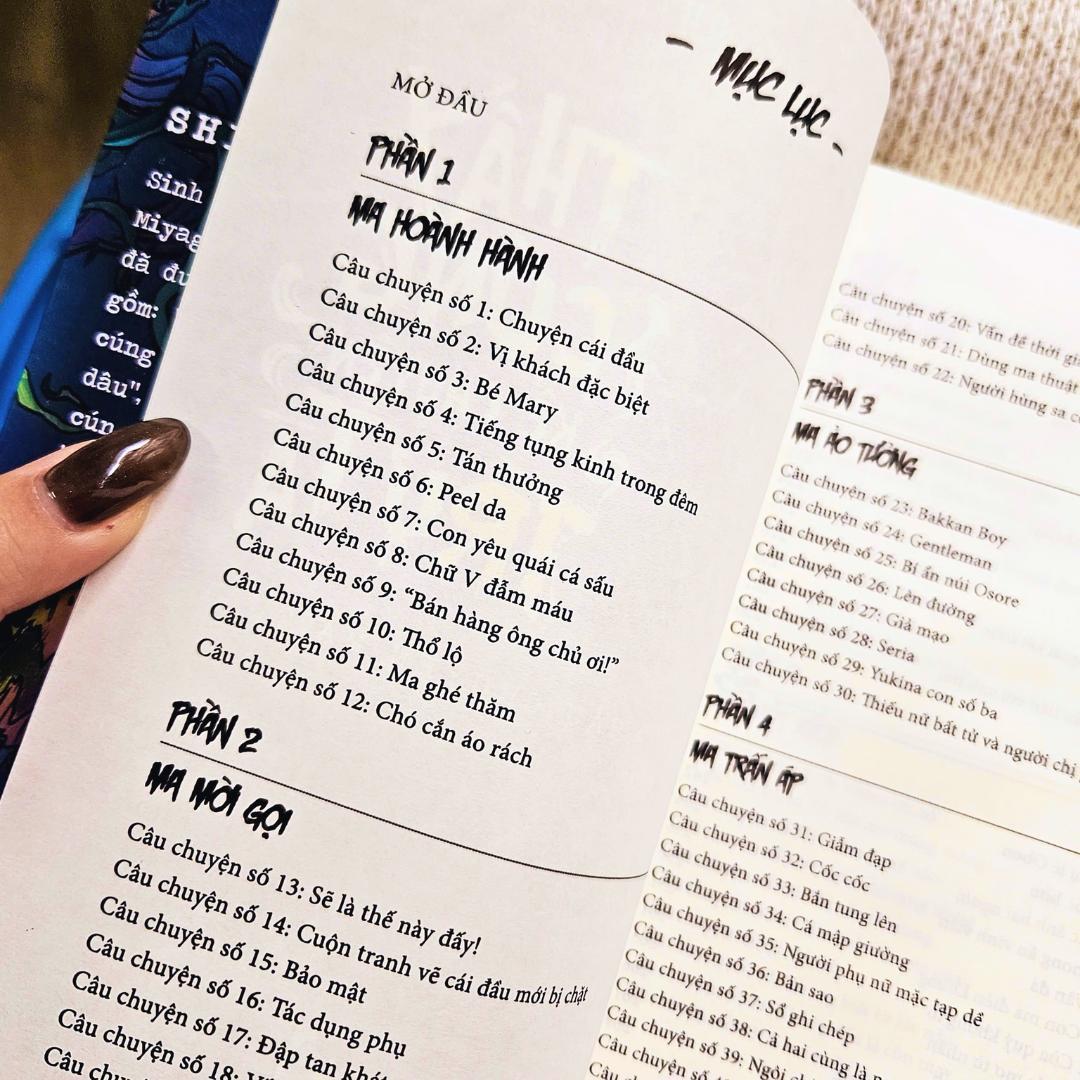 SH
Sinh
Miyag
đã đư
gồm:
cúng
dâu",
cún
- MỤC LỤC -
MỞ ĐẦU
PHẦN 1
MA HOÀNH HÀNH
Câu chuyện số 1: Chuyện cái đầu
Câu chuyện số 2: Vị khách đặc biệt
Câu chuyện số 3: Bé Mary
Câu chuyện số 4: Tiếng tụng kinh trong đêm
Câu chuyện số 5: Tán thưởng
Câu chuyện số 6: Peel da
Câu chuyện số 7: Con yêu quái cá sấu
Câu chuyện số 8: Chữ V đẫm máu
Câu chuyện số 9: “Bán hàng ông chủ ơi!”
Câu chuyện số 10: Thổ lộ
Câu chuyện số 11: Ma ghé thăm
Câu chuyện số 12: Chó cắn áo rách
PHẦN 2
MA MỜI GỌI
Câu chuyện số 13: Sẽ là thế này đấy!
Câu chuyện số 14: Cuộn tranh vẽ cái đầu mới bị chặt
Câu chuyện số 15: Bảo mật
Câu chuyện số 16: Tác dụng phụ
Câu chuyện số 17: Đập tan
Câu chuyện số 18:
Câu
Câu chuyện số 20: Vấn đề thời
Câu chuyện số 21: Dùng ma thuật
Câu chuyện số 22: Người hùng sa
PHẦN 3
MA ẢO TƯỞNG
Câu chuyện số 23: Bakkan Boy
Câu chuyện số 24: Gentleman
Câu chuyện số 25: Bí ẩn núi Osore
Câu chuyện số 26: Lên đường
Câu chuyện số 27: Giả mạo
Câu chuyện số 28: Seria
Câu chuyện số 29: Yukina con số ba
Câu chuyện số 30: Thiếu nữ bất tử và người chị
PHẦN 4
MA TRẤN ÁP
Câu chuyện số 31: Giẫm đạp
Câu chuyện số 32: Cốc cốc
Câu chuyện số 33: Bắn tung lên
Câu chuyện số 34: Cá mập giường
Câu chuyện số 35: Người phụ nữ mặc tạp dề
Câu chuyện số 36: Bản sao
Câu chuyện số 37: Sổ ghi chép
Câu chuyện số 38: Cả hai cùng là
Câu chuyện số 39: